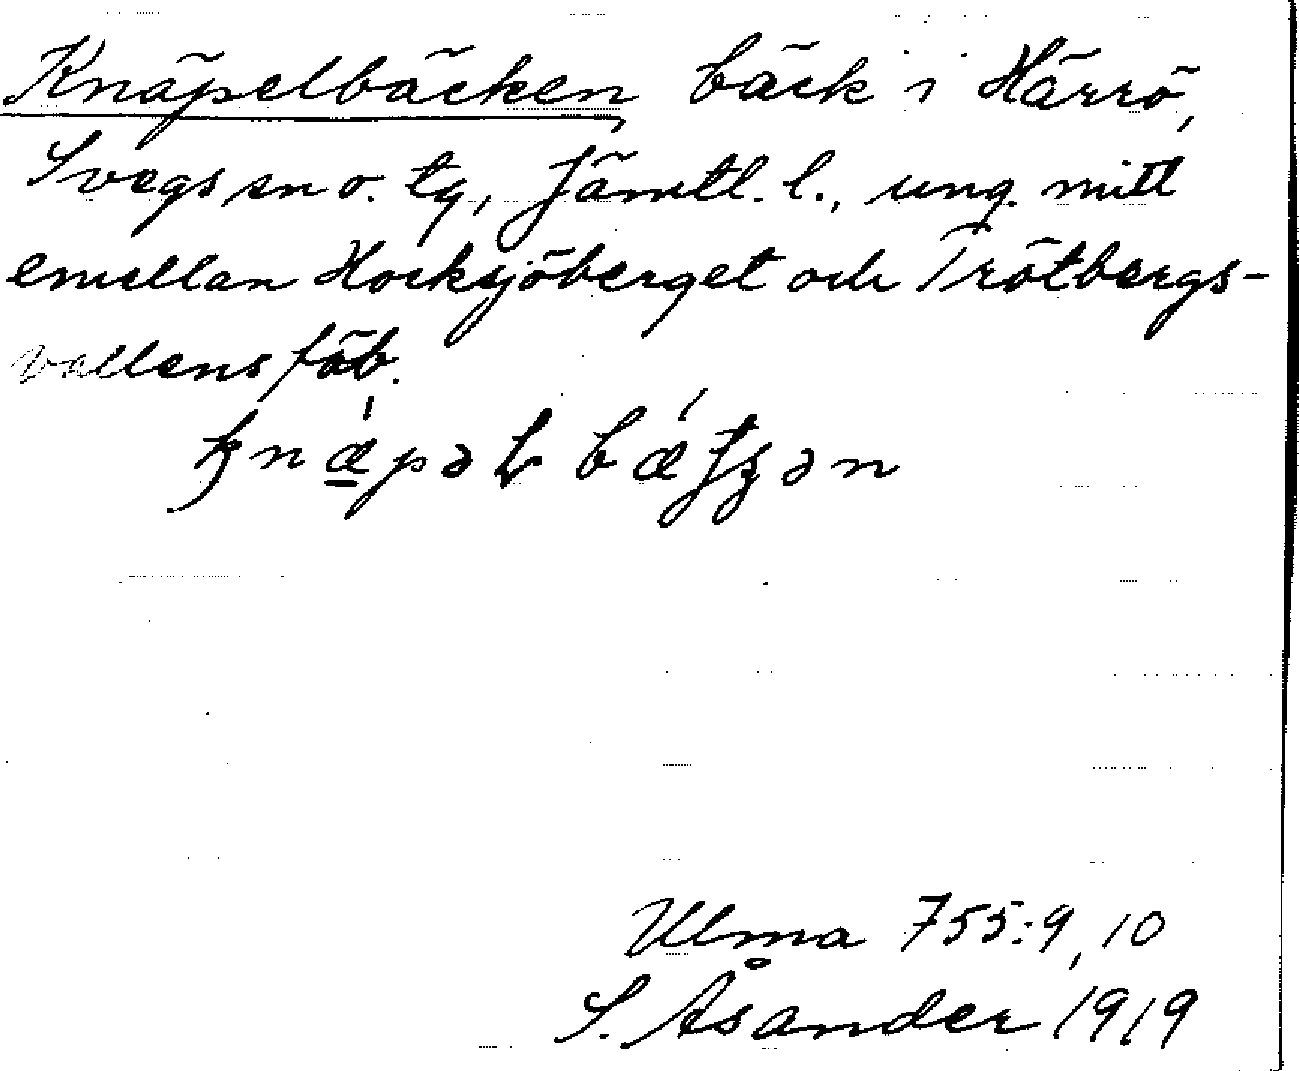 Knäpelbäcken, bäck i Härrö,
Svegs sn o. tg, Jämtl. l., ung. mitt
emellan Hocksjöberget och Trötbergs-
vallens fäb.
Ulma 755:9, 10
S. Åsander 1919